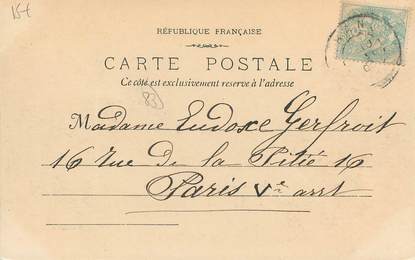 15t
RÉPUBLIQUE FRANÇAISE
CARTE POSTALE
Ce côté est exclusivement reserve à l'adresse
Madame Eudoxe Gerfroit
16 Rue de la Pitié 16
Paris Ve arrt